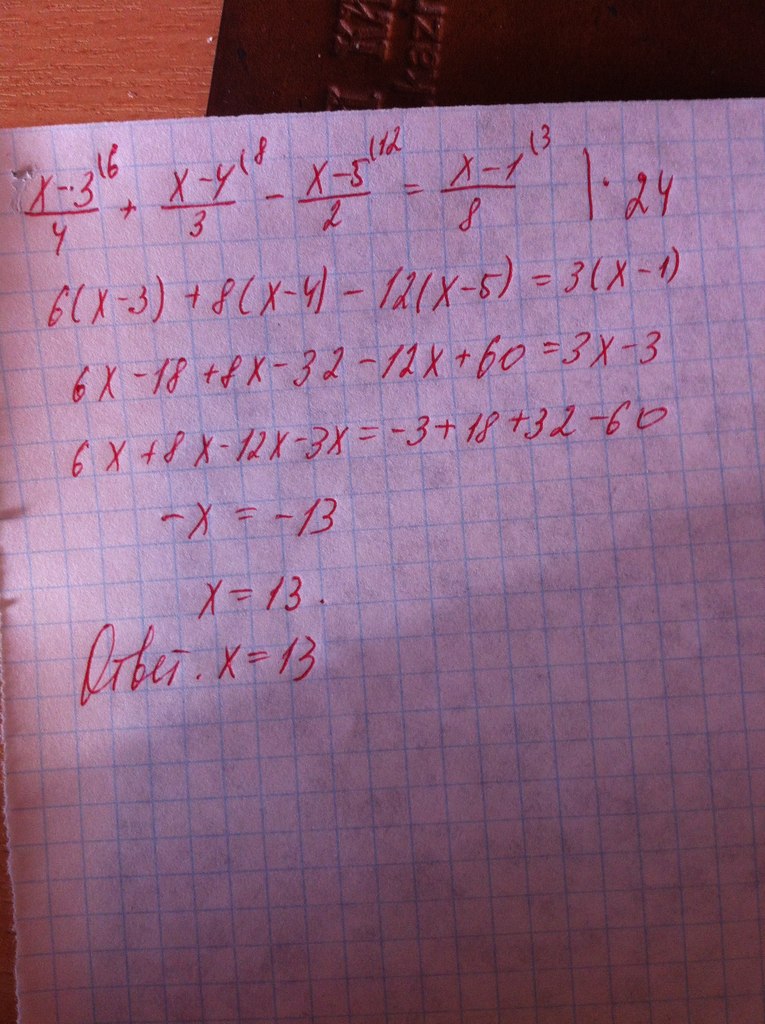 КИ
kazr
(x-3)/4 (6 + (x-4)/3 (8 - (x-5)/2 (12 = (x-1)/8 (3 | · 24
6(x-3) + 8(x-4) - 12(x-5) = 3(x-1)
6x - 18 + 8x - 32 - 12x + 60 = 3x - 3
6x + 8x - 12x - 3x = -3 + 18 + 32 - 60
-x = -13
x = 13.
Ответ. x = 13